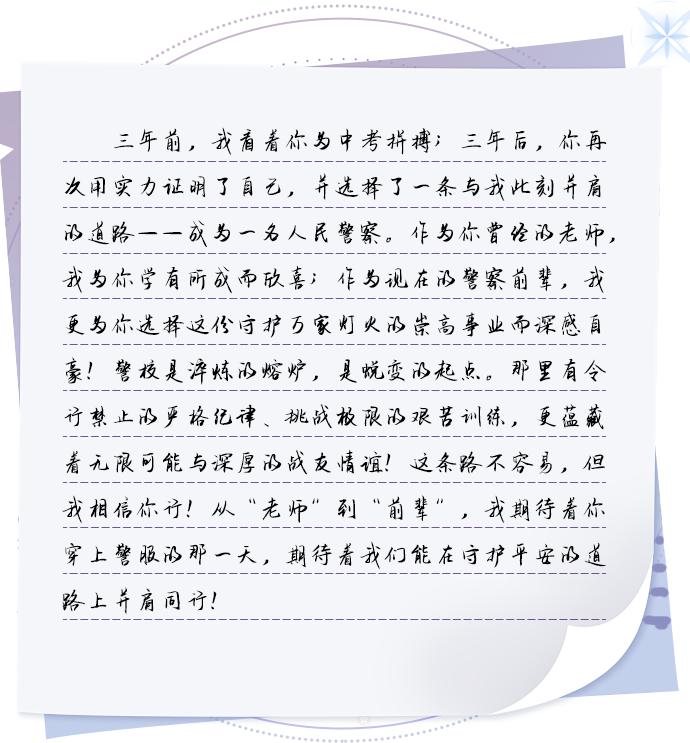 三年前，我看着你为中考拼搏；三年后，你再
次用实力证明了自己，并选择了一条与我此刻并肩
的道路——成为一名人民警察。作为你曾经的老师，
我为你学有所成而欣喜；作为现在的警察前辈，我
更为你选择这份守护万家灯火的崇高事业而深感自
豪！警校是淬炼的熔炉，是蜕变的起点。那里有令
行禁止的严格纪律、挑战极限的艰苦训练，更蕴藏
着无限可能与深厚的战友情谊！这条路不容易，但
我相信你行！从“老师”到“前辈”，我期待着你
穿上警服的那一天，期待着我们能在守护平安的道
路上并肩同行！